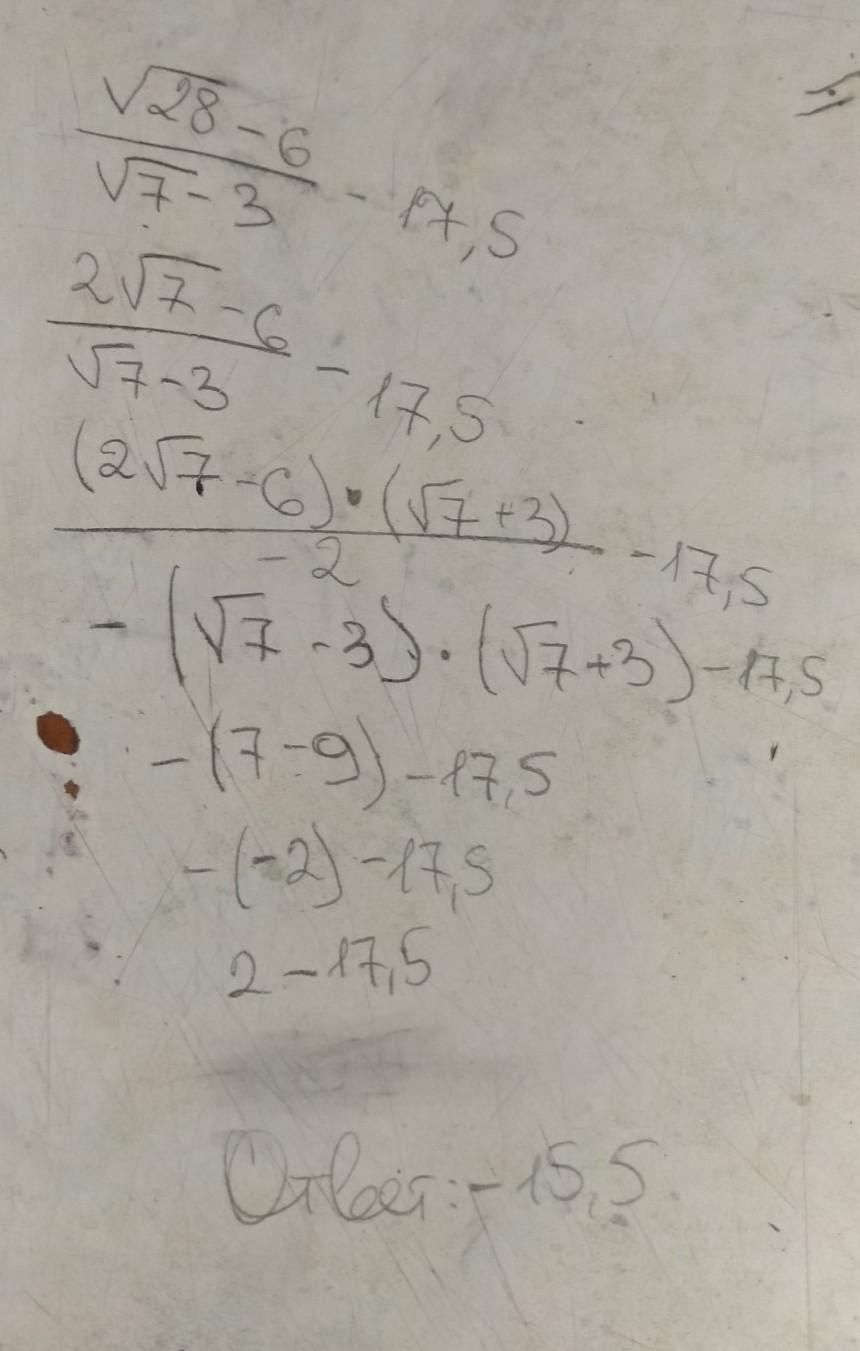 (√28 - 6)/(√7 - 3) - 17,5
(2√7 - 6)/(√7 - 3) - 17,5
((2√7 - 6) · (√7 + 3))/(-2) - 17,5
- (√7 - 3) · (√7 + 3) - 17,5
- (7 - 9) - 17,5
- (-2) - 17,5
2 - 17,5
Ответ: - 15,5